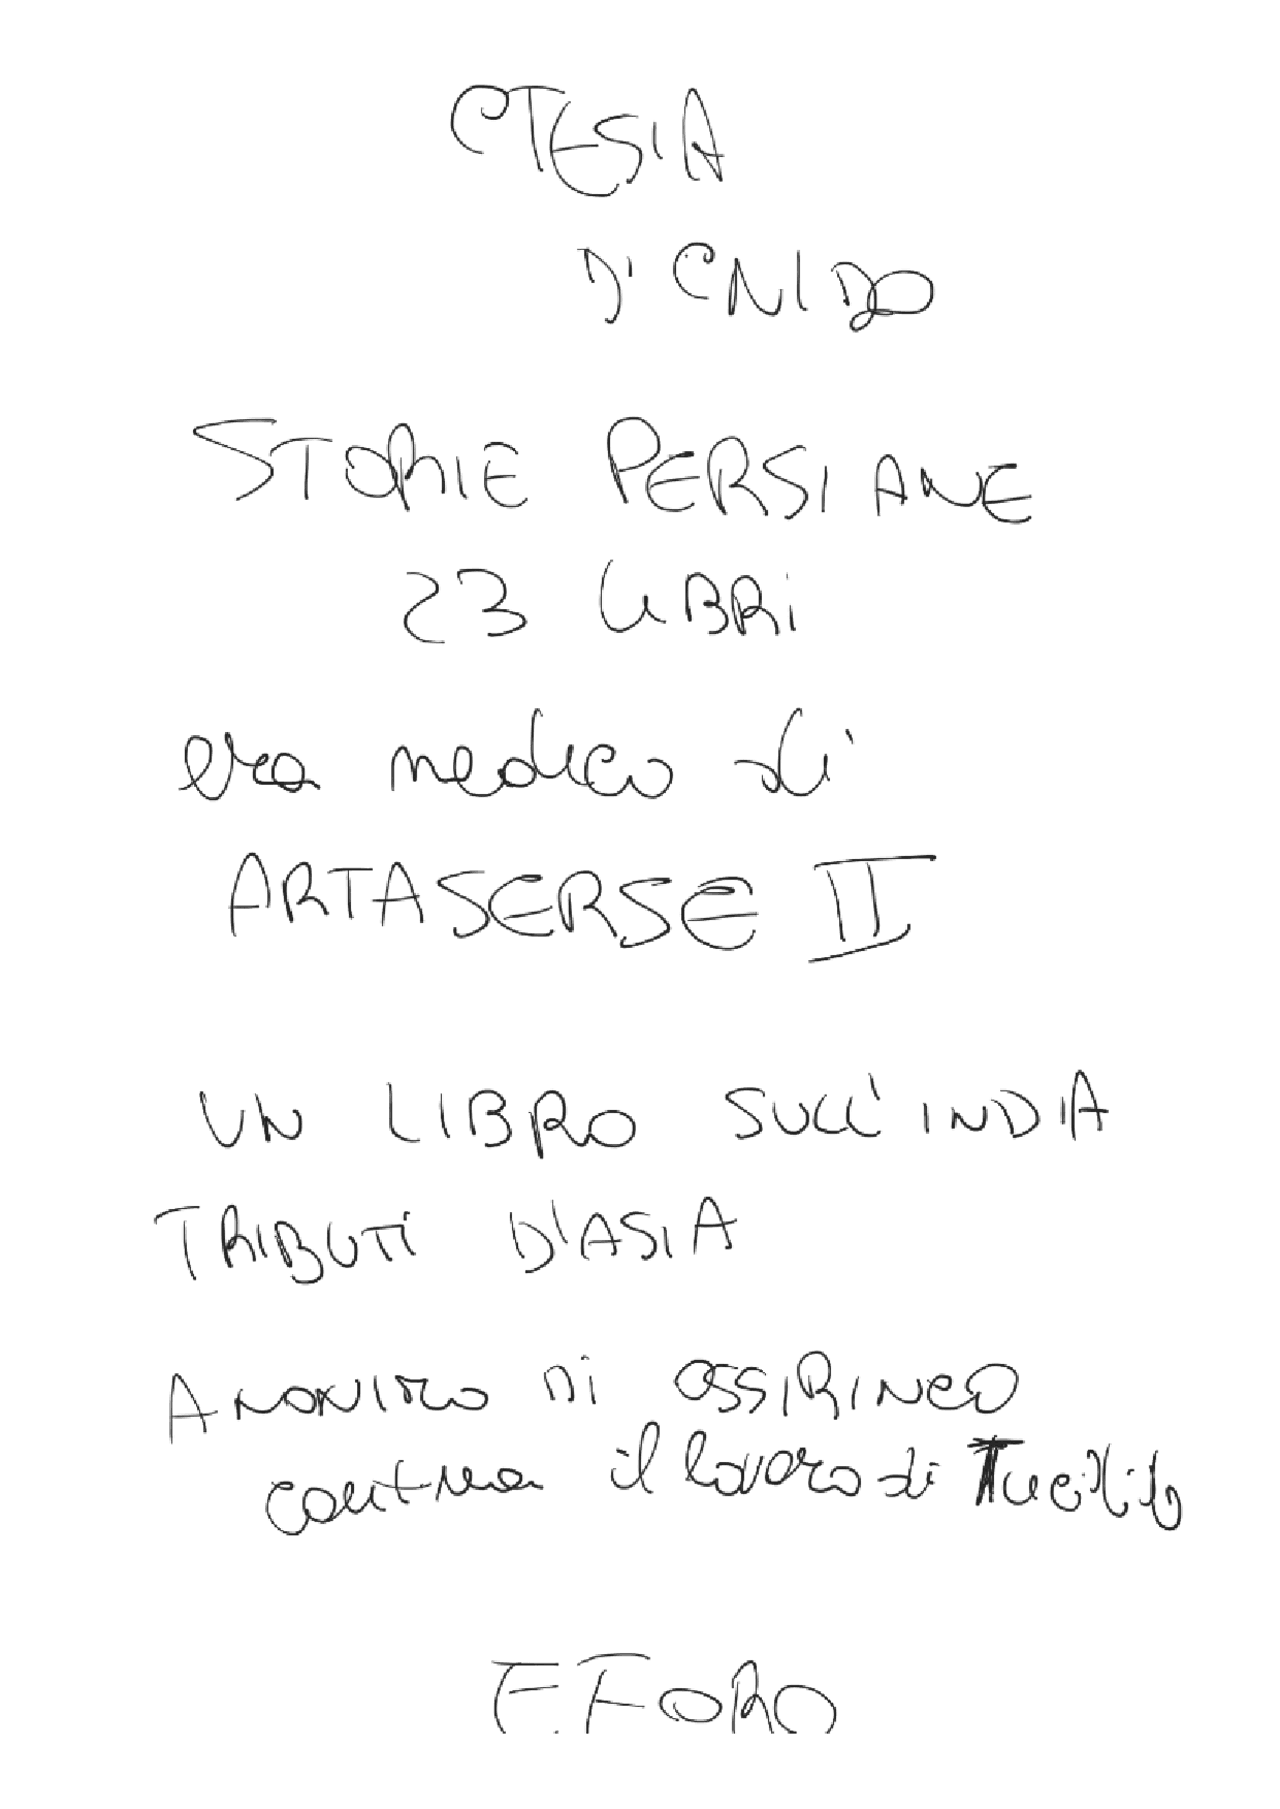 CTESIA
DI CNIDO
STORIE PERSIANE
23 LIBRI
era medico di
ARTASERSE II
UN LIBRO SULL'INDIA
TRIBUTI D'ASIA
ANONIMO DI OSSIRINCO
continua il lavoro di Tucidide
EFORO